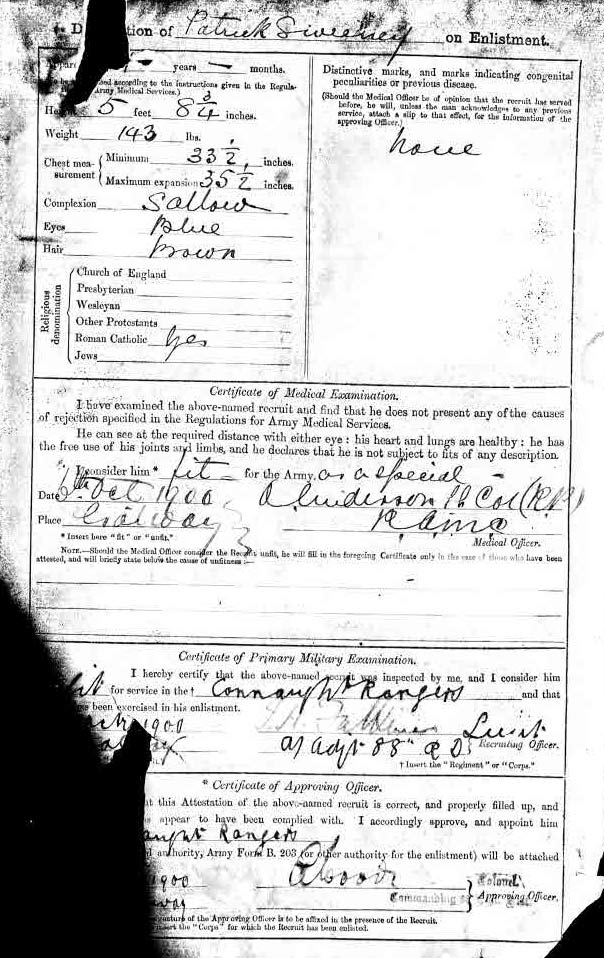 tion of Patrick Sweeney on Enlistment.
years — months.
according to the instructions given in the Regula-
Army Medical Services.)
5 feet 8 3/4 inches.
Weight 143 lbs.
Chest mea-
surement
Minimum 33 1/2 inches.
Maximum expansion 35 1/2 inches.
Complexion Sallow
Eyes Blue
Hair Brown
Religious
denomination
Church of England
Presbyterian
Wesleyan
Other Protestants
Roman Catholic Yes
Jews
Distinctive marks, and marks indicating congenital
peculiarities or previous disease.
(Should the Medical Officer be of opinion that the recruit has served
before, he will, unless the man acknowledges to any previous
service, attach a slip to that effect, for the information of the
approving Officer.)
None
Certificate of Medical Examination.
I have examined the above-named recruit and find that he does not present any of the causes
of rejection specified in the Regulations for Army Medical Services.
He can see at the required distance with either eye : his heart and lungs are healthy : he has
the free use of his joints and limbs, and he declares that he is not subject to fits of any description.
I consider him * fit for the Army as a special
Date Oct 1900 Lt Col
Place Galway RAMC
* Insert here "fit" or "unfit." Medical Officer.
NOTE.—Should the Medical Officer consider the Recruit unfit, he will fill in the foregoing Certificate only in the case of those who have been
attested, and will briefly state below the cause of unfitness :—
Certificate of Primary Military Examination.
I hereby certify that the above-named recruit was inspected by me, and I consider him
fit for service in the † Connaught Rangers and that
been exercised in his enlistment.
1900 Lieut
a/ Adjt 88th R D Recruiting Officer.
† Insert the "Regiment" or "Corps."
* Certificate of Approving Officer.
this Attestation of the above-named recruit is correct, and properly filled up, and
appear to have been complied with. I accordingly approve, and appoint him
aught Rangers
authority, Army Form B. 203 (or other authority for the enlistment) will be attached
1900 Colonel
way Commanding Approving Officer.
of the Approving Officer is to be affixed in the presence of the Recruit.
the "Corps" for which the Recruit has been enlisted.